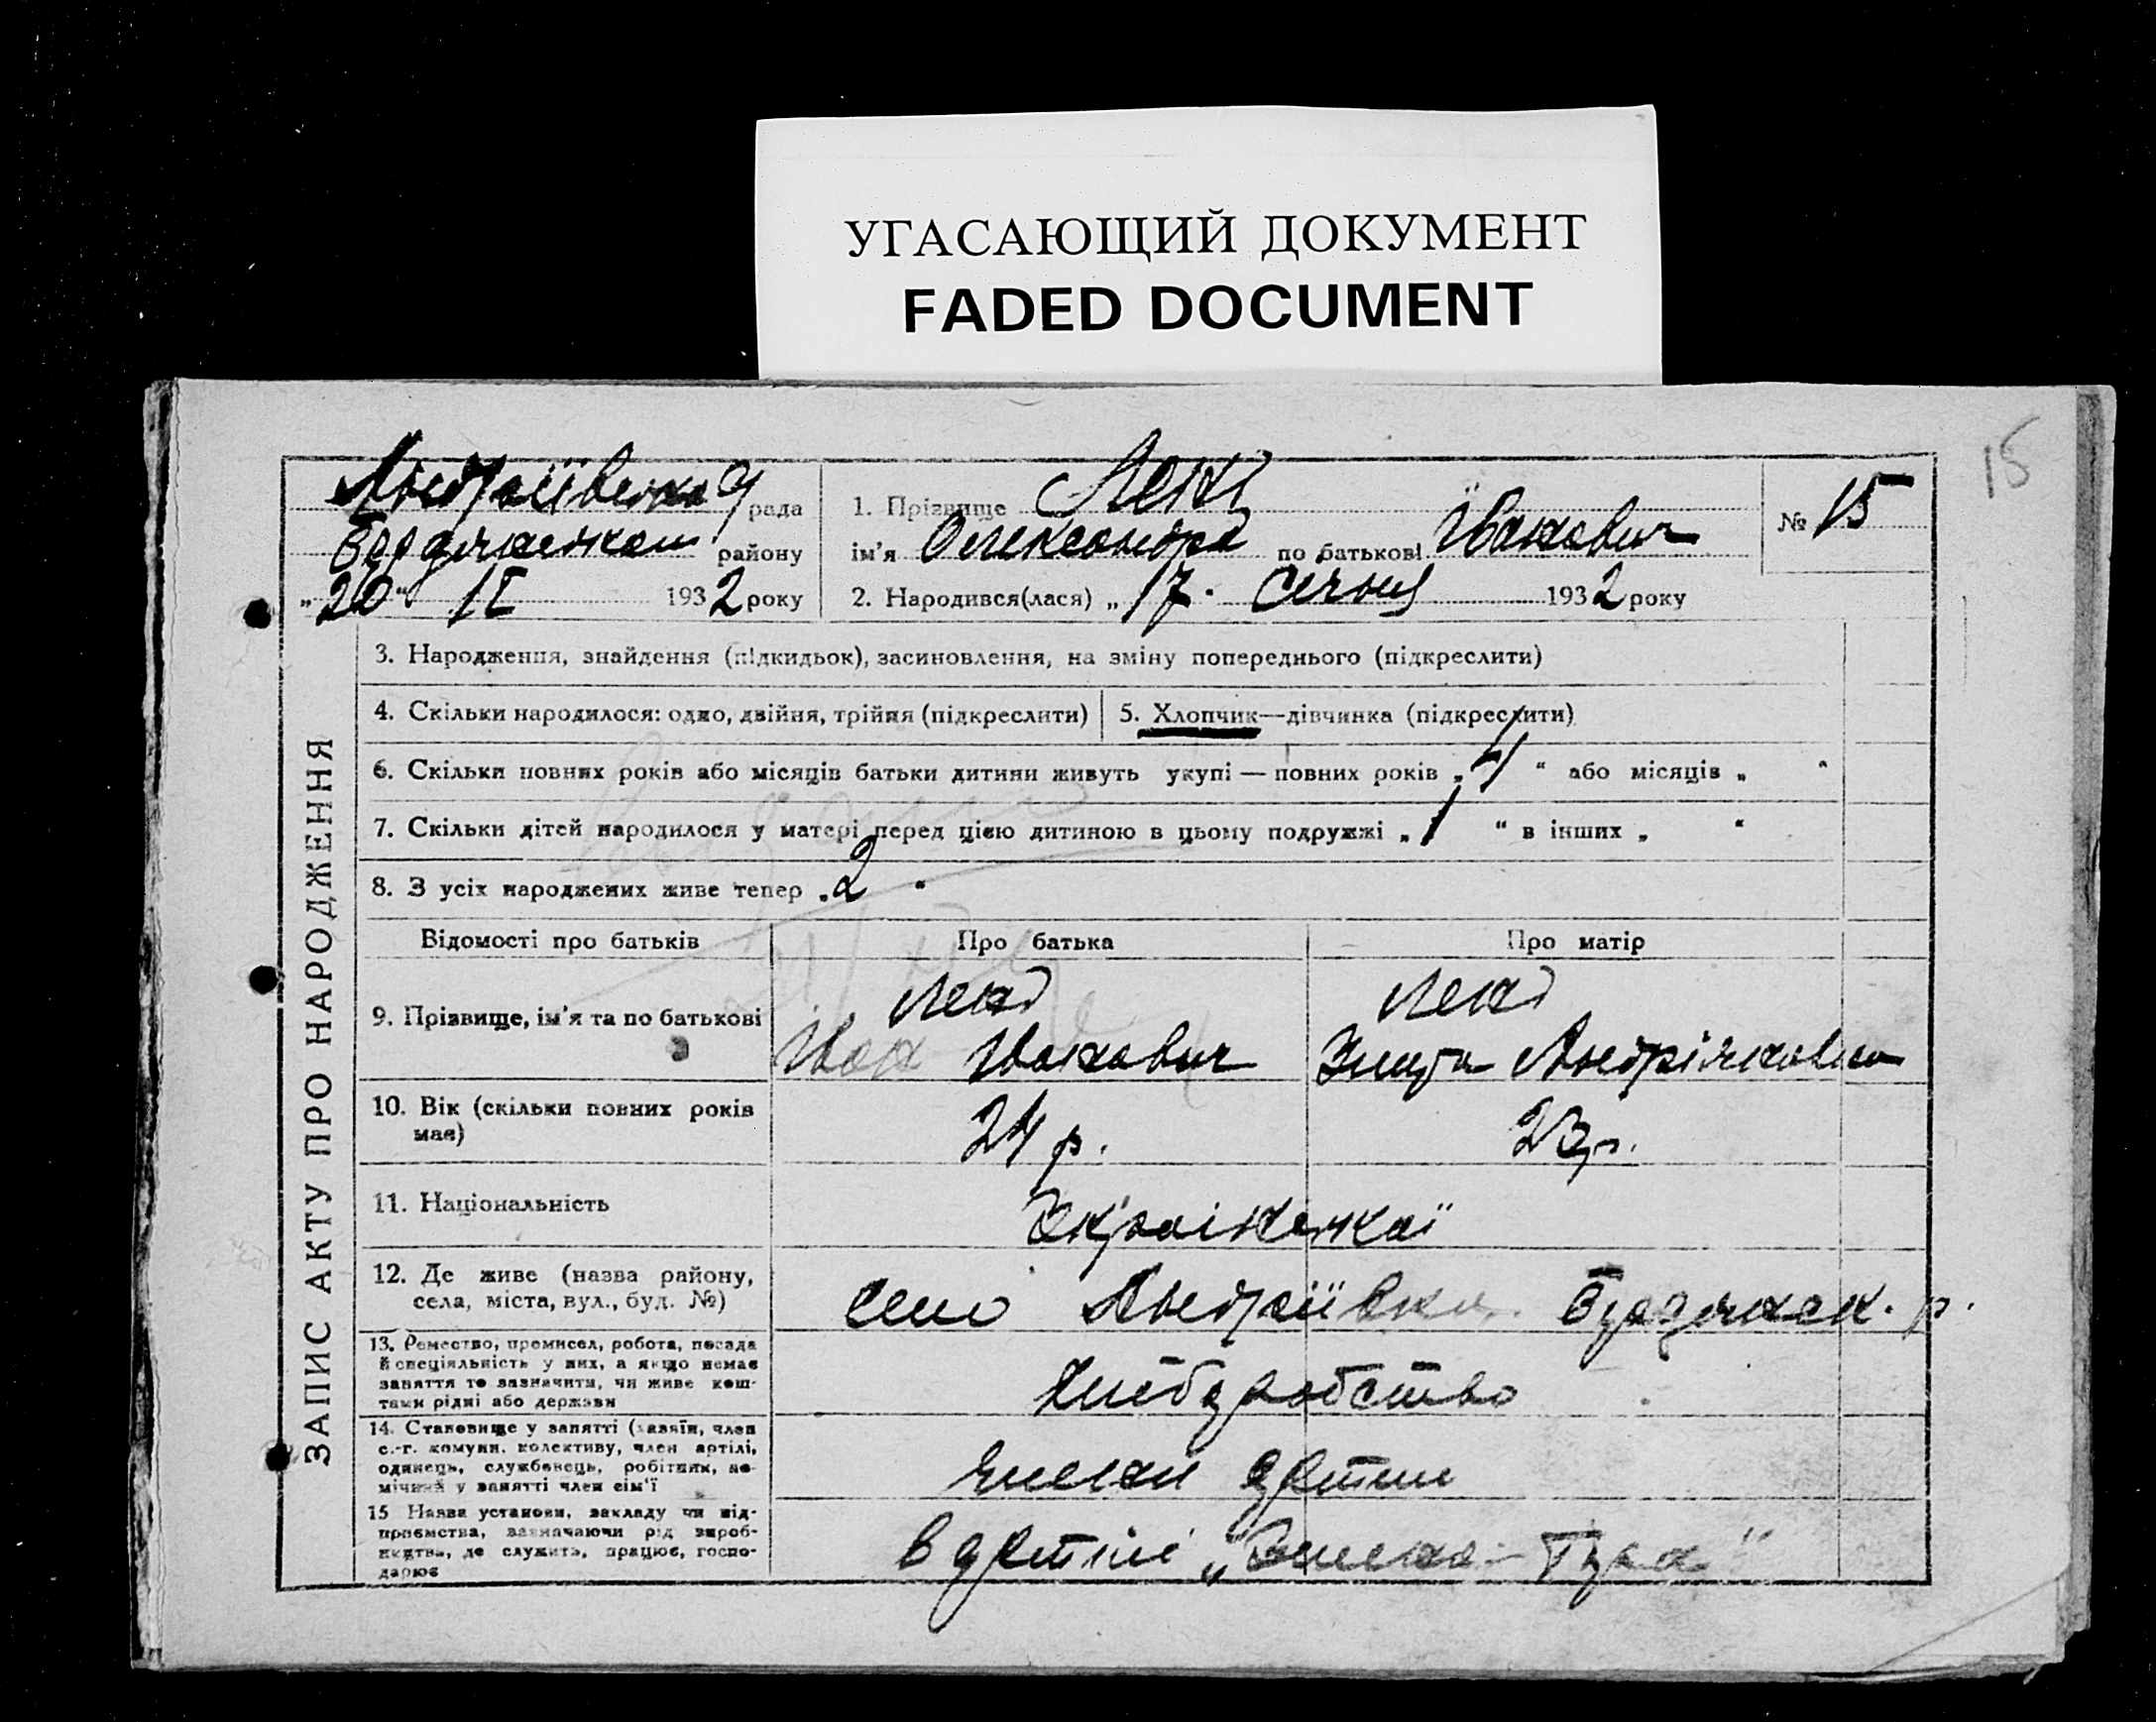 УГАСАЮЩИЙ ДОКУМЕНТ
FADED DOCUMENT
15
Андріївська рада
району
"20" II 1932 року
1. Прізвище
ім'я Олександра по батькові Іванович
2. Народився(лася) „17. Січня 1932 року
№ 15
ЗАПИС АКТУ ПРО НАРОДЖЕННЯ
3. Народження, знайдення (підкидьок), засиновлення, на зміну попереднього (підкреслити)
4. Скільки народилося: одно, двійня, трійня (підкреслити)
5. Хлопчик—дівчинка (підкреслити)
6. Скільки повних років або місяців батьки дитини живуть укупі — повних років „4" або місяців „ "
7. Скільки дітей народилося у матері перед цією дитиною в цьому подружжі „1" в інших „ "
8. З усіх народжених живе тепер „2"
Відомості про батьків
Про батька
Про матір
9. Прізвище, ім'я та по батькові
Іван Іванович
10. Вік (скільки повних років
має)
24 р.
23 р.
11. Національність
12. Де живе (назва району,
села, міста, вул., буд. №)
село Андріївка р.
13. Ремество, промисел, робота, посада
й спеціяльність у них, а якщо немає
заняття то зазначити, чи живе кош-
тами рідні або держави
Хліборобство
14. Становище у занятті (хазяїн, член
с.-г. комуни, колективу, член артілі,
одинець, службовець, робітник, по-
мічний у занятті член сім'ї
члени артіли
15 Назва установи, закладу чи під-
приємства, зазначаючи рід вироб-
ництва, де служить, працює, госпо-
дарює
В артілі